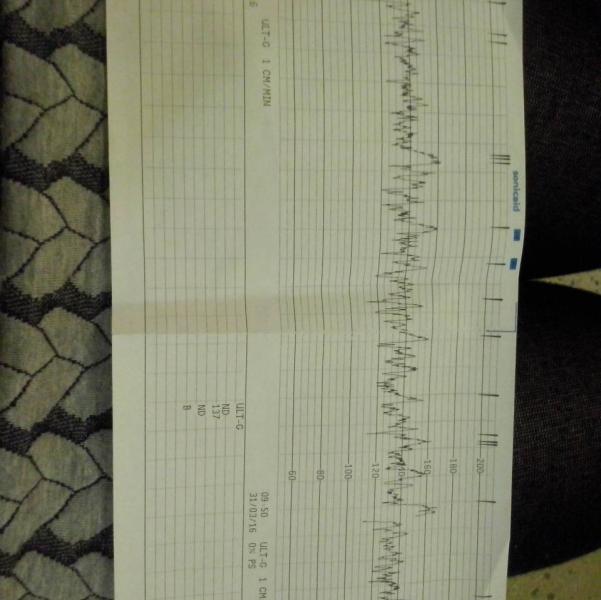 6 ULT-G 1 CM/MIN
sonicaid
200 180 160 140 120 100 80 60
09:50 ULT-G 1 CM
31/03/16 0% PS
ULT-G
ND
137
ND
B